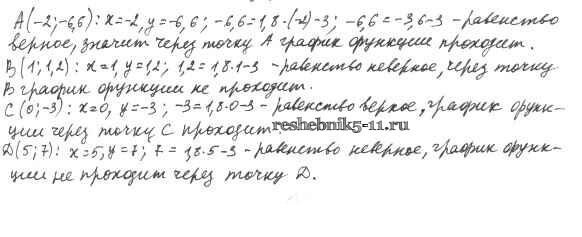 A(-2;-6,6): x=-2, y=-6,6; -6,6=1,8·(-2)-3; -6,6=-3,6-3 - равенство
верное, значит через точку A график функции проходит.
B(1;1,2): x=1, y=1,2; 1,2=1,8·1-3 - равенство неверное, через точку
B график функции не проходит.
C(0;-3): x=0, y=-3; -3=1,8·0-3 - равенство верное, график функ-
ции через точку C проходит.
reshebnik5-11.ru
D(5;7): x=5, y=7; 7=1,8·5-3 - равенство неверное, график функ-
ции не проходит через точку D.